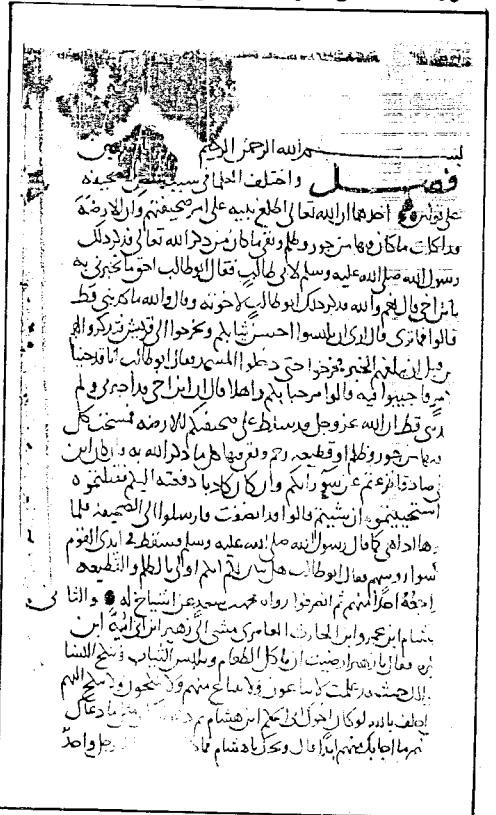 بسم الله الرحمن الرحيم
فصل واختلف العلما في سبب نقض الصحيفه
على قولين احدهما ان الله تعالى اطلع نبيه على امر صحيفتهم وان الارضة
قد اكلت ما كان فيها من جور وظلم وبقي ما كان من ذكر الله تعالى فذكر ذلك
رسول الله صلى الله عليه وسلم لابي طالب فقال ابو طالب احق ما تخبرني به
يا بن اخي قال نعم والله فذكر ذلك ابو طالب لاخوته وقال والله ما كذبني قط
قالوا فما ترى قال ارى ان تلبسوا احسن ثيابكم وتخرجوا الى قريش فتذكروا لهم
من قبل ان يبلغهم الخبر فخرجوا حتى دخلوا المسجد فقال ابو طالب انا قد جئنا
لامر فاجيبوا فيه قالوا مرحبا بكم واهلا قال ان ابن اخي قد اخبرني ولم
قط ان الله عز وجل قد سلط على صحيفتكم الارضه فمسحت كل
فيها من جور وظلم او قطيعه رحم وبقي بها كل ما ذكر الله به فان كان ابن
صادقا نزعتم عن سو رأيكم وان كان كاذبا دفعته اليكم فقتلتموه
استحييتموه ان شيتم قالوا قد انصفت فارسلوا الى الصحيفه فلما
اذا هي كما قال رسول الله صلى الله عليه وسلم فسقط في ايدي القوم
روسهم فقال ابو طالب هل تبين لكم انكم اولى بالظلم والقطيعه
احد منهم ثم انصرفوا رواه محمد بن سعد عن اشياخ له والثاني
هشام ابن عمرو ابن الحارث العامري مشى الى زهير ابن ابي امية ابن
فقال يا زهير ارضيت ان تاكل الطعام وتلبس الثياب وتنكح النسا
حيث قد علمت لا يباعون ولا يبتاع منهم ولا ينكحون ولا ينكح اليهم
احلف بالله لو كان اخوال ابي الحكم ابن هشام ثم دعوته
ما اجابك منهم ابدا قال ويحك يا هشام فماذا رجل واحد